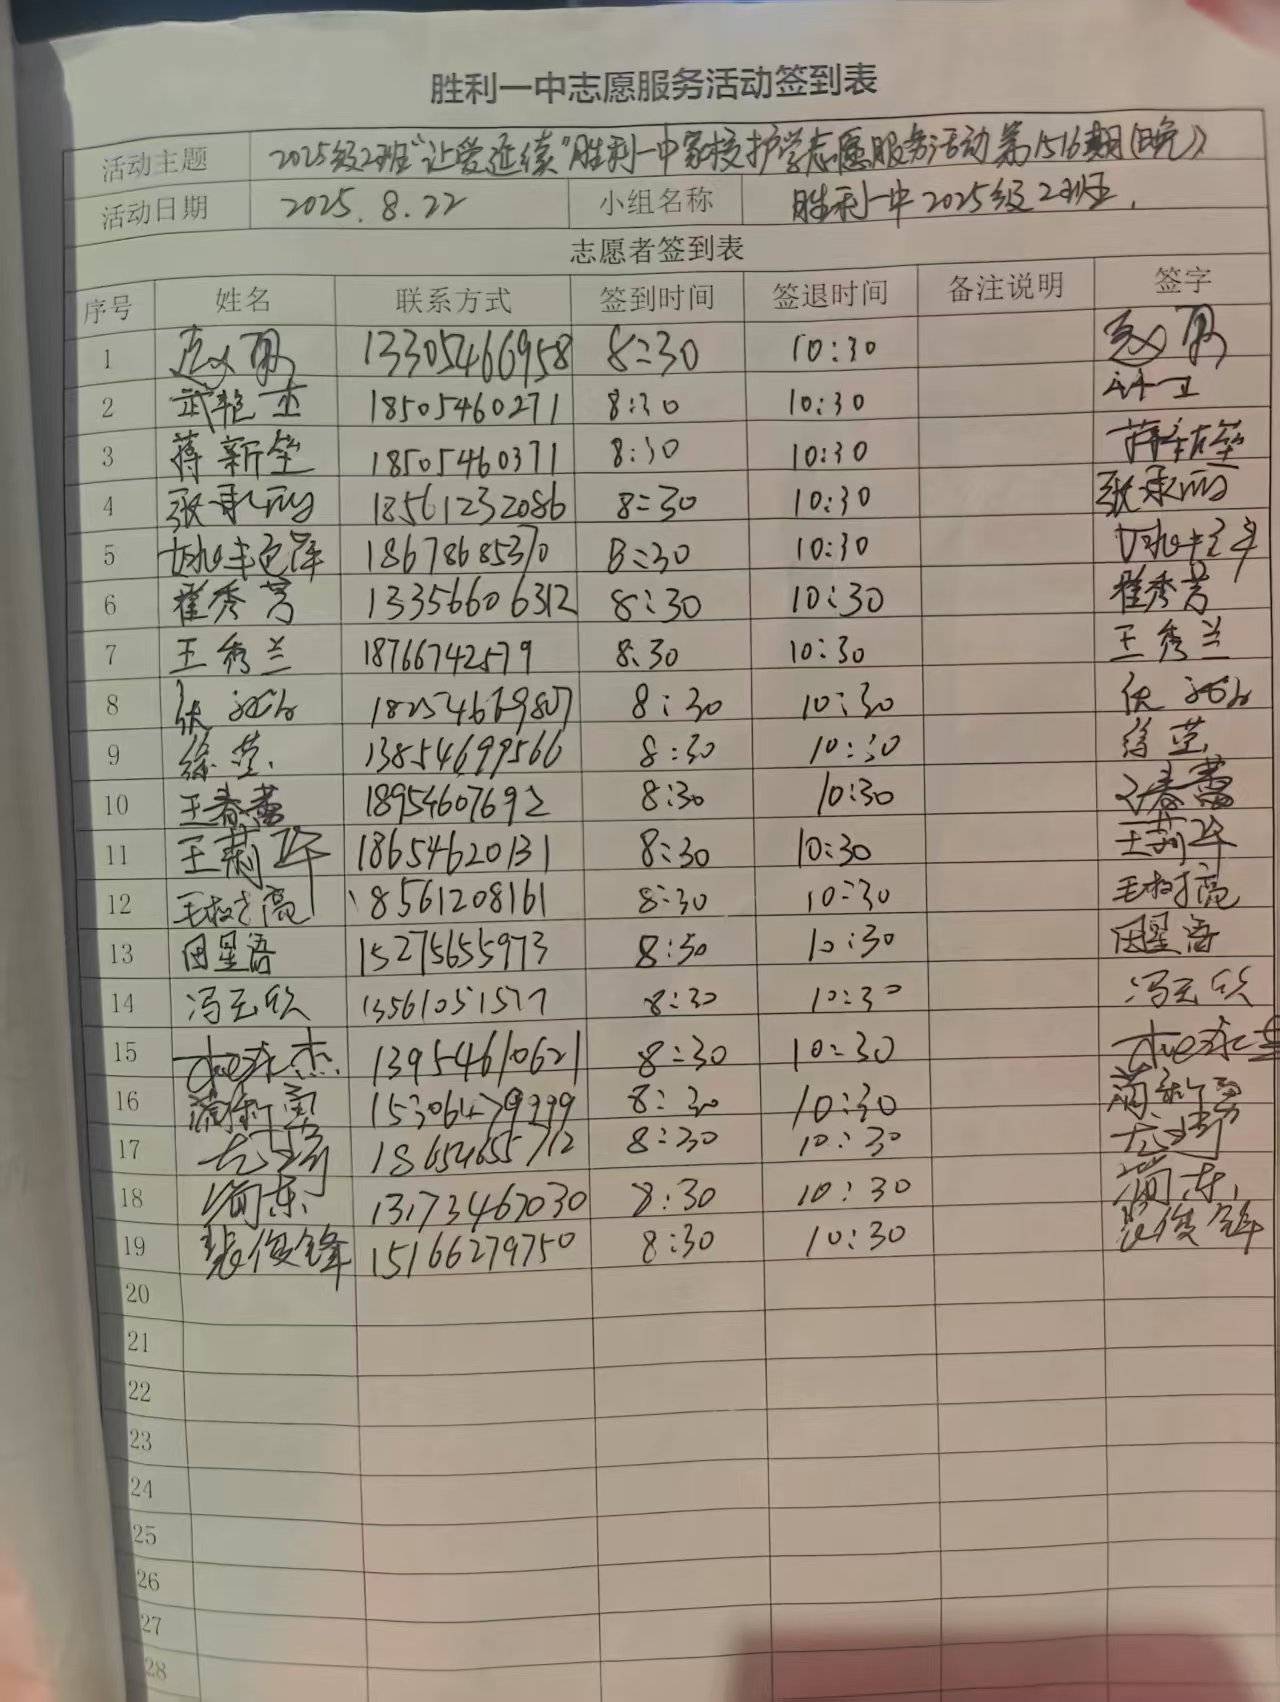 胜利一中志愿服务活动签到表
活动主题 2025级2班"让爱延续"胜利一中家校护学志愿服务活动第1516期(晚)
活动日期 2025.8.22 小组名称 胜利一中2025级2班.
志愿者签到表
序号 姓名 联系方式 签到时间 签退时间 备注说明 签字
1 13305466958 8:30 10:30
2 武艳 18505460271 8:30 10:30
3 蒋新堂 18505460371 8:30 10:30 蒋新堂
4 张永丽 18561232086 8:30 10:30 张永丽
5 18678685370 8:30 10:30
6 崔秀芳 13356606312 8:30 10:30 崔秀芳
7 王秀兰 18766742579 8:30 10:30 王秀兰
8 8:30 10:30
9 徐莹. 13854699566 8:30 10:30 徐莹
10 王春蕾 18954607692 8:30 10:30 王春蕾
11 王莉华 18654620131 8:30 10:30 王莉华
12 18561208161 8:30 10:30
13 田星语 15275655973 8:30 10:30 田星语
14 冯云欣 13561051577 8:30 10:30 冯云欣
15 13954610621 8:30 10:30
16 15306479999 8:30 10:30
17 18654655712 8:30 10:30
18 13173467030 8:30 10:30
19 裴俊锋 15166279750 8:30 10:30 裴俊锋
20
21
22
23
24
25
26
27
28